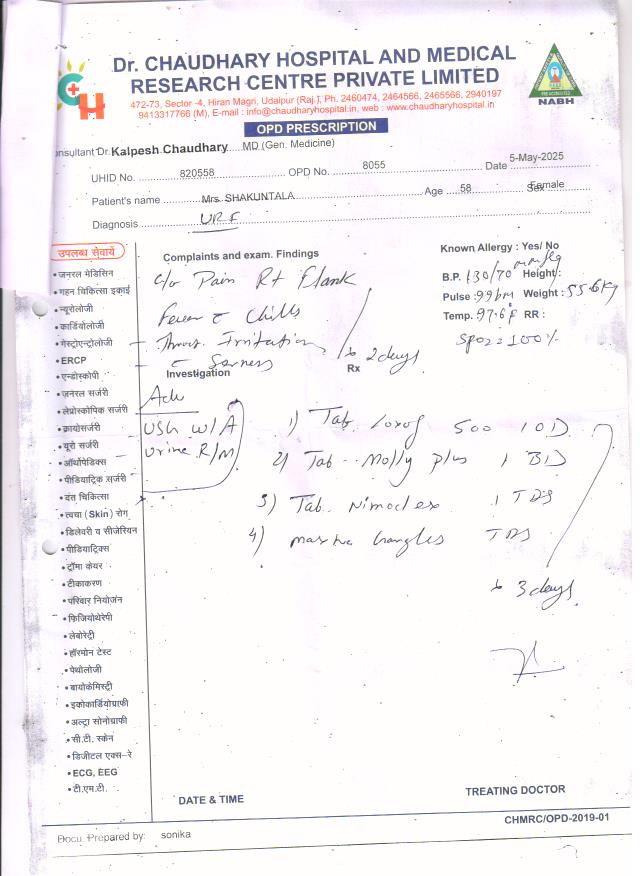 Dr. CHAUDHARY HOSPITAL AND MEDICAL
RESEARCH CENTRE PRIVATE LIMITED
472-73, Sector -4, Hiran Magri, Udaipur (Raj.), Ph. 2460474, 2464566, 2465566, 2940197
9413317766 (M), E-mail : info@chaudharyhospital.in, web : www.chaudharyhospital.in
CH
NABH
OPD PRESCRIPTION
onsultant Dr. Kalpesh Chaudhary MD (Gen. Medicine)
UHID No. 820558 OPD No. 8055 Date 5-May-2025
Patient's name Mrs. SHAKUNTALA Age 58 Sex Female
Diagnosis
उपलब्ध सेवायें
• जनरल मेडिसिन
• गहन चिकित्सा इकाई
• न्यूरोलोजी
• कार्डियोलोजी
• गेस्ट्रोएन्ट्रोलोजी
• ERCP
• एन्डोस्कोपी
• जनरल सर्जरी
• लेप्रोस्कोपिक सर्जरी
• क्रायोसर्जरी
• यूरो सर्जरी
• ऑर्थोपेडिक्स
• पीडियाट्रिक सर्जरी
• दंत चिकित्सा
• त्वचा (Skin) रोग
• डिलेवरी व सीजेरियन
• पीडियाट्रिक्स
• ट्रॉमा केयर
• टीकाकरण
• परिवार नियोजन
• फिजियोथेरेपी
• लेबोरेट्री
• हॉरमोन टेस्ट
• पेथोलोजी
• बायोकेमिस्ट्री
• इकोकार्डियोग्राफी
• अल्ट्रा सोनोग्राफी
• सी.टी. स्केन
• डिजीटल एक्स-रे
• ECG, EEG
• टी.एम.टी.
Complaints and exam. Findings
Known Allergy : Yes/ No
B.P. 130/70 mmHg Height :
Pulse : 99 bm Weight : 55.6 kg
Temp. 97.6 F RR :
SpO2 = 100%
c/o Pain Rt Flank
Fever c Chills
Throat Irritation
c Soreness
x 2 days
Investigation
Rx
Adv
USG W/A
Urine R/M
1) Tab. 500 1 OD
2) Tab. Molly plus 1 BD
3) Tab. Nimodex 1 TDS
4) TDS
x 3 days
DATE & TIME
TREATING DOCTOR
CHMRC/OPD-2019-01
Docu. Prepared by: sonika